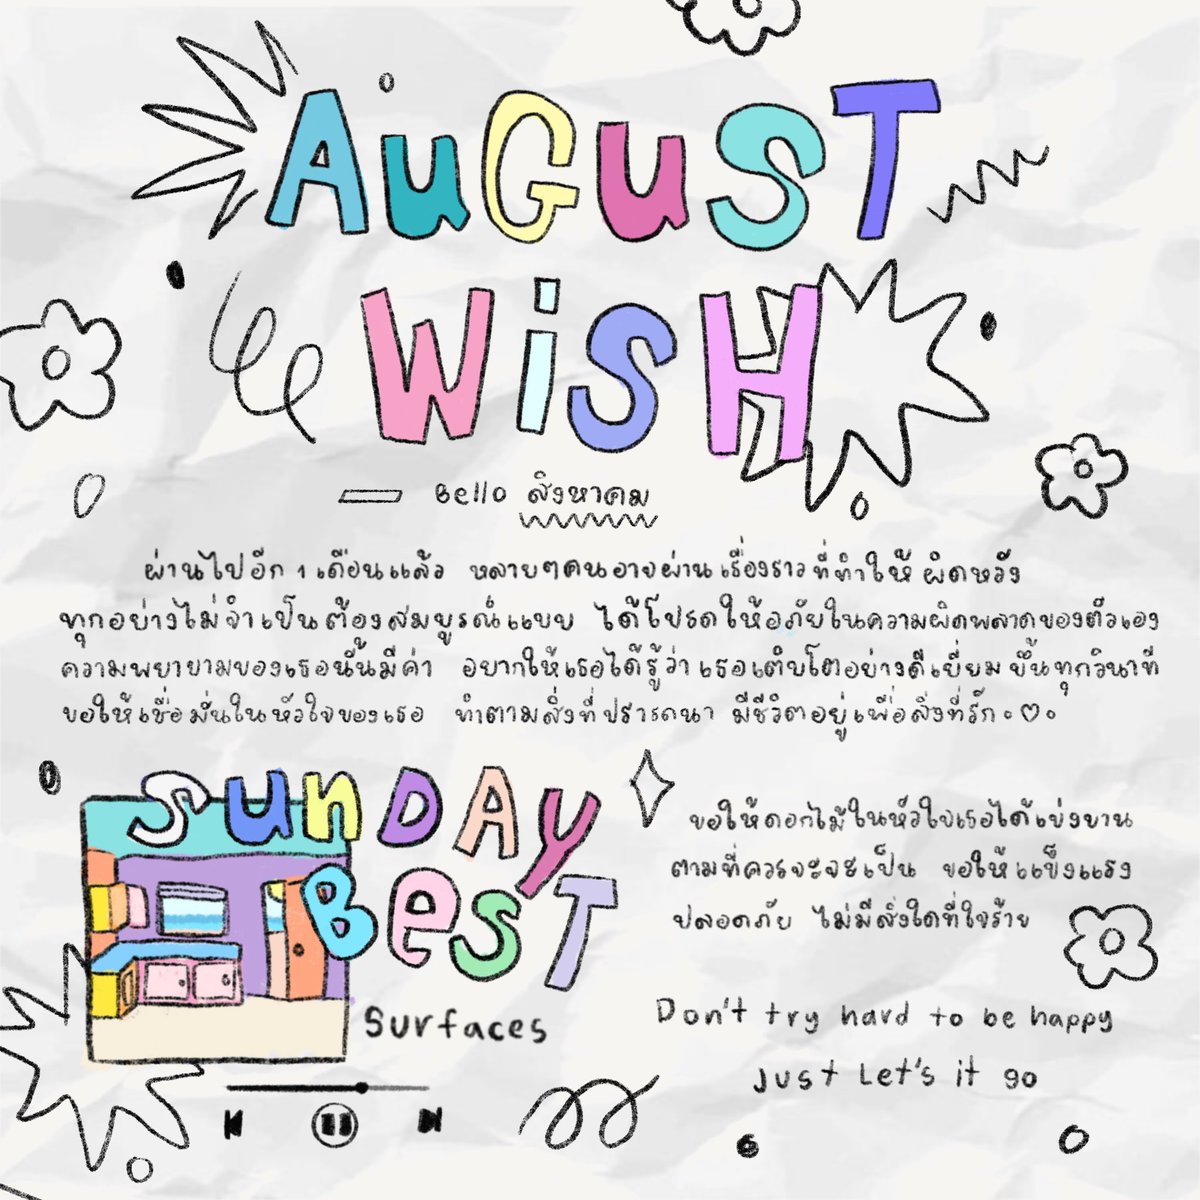 AuGuST
WiSH
Bello สิงหาคม
ผ่านไปอีก 1 เดือนแล้ว หลายๆคนอาจผ่านเรื่องราวที่ทำให้ ผิดหวัง
ทุกอย่างไม่จำเป็นต้องสมบูรณ์แบบ ได้โปรดให้อภัยในความผิดพลาดของตัวเอง
ความพยายามของเธอนี้นั้นมีค่า อยากให้เธอได้รู้ว่า เธอเติบโตอย่างดีเยี่ยม ขึ้นทุกวินาที
ขอให้เชื่อมั่นในหัวใจของเธอ ทำตามสิ่งที่ปรารถนา มีชีวิตอยู่เพื่อสิ่งที่รัก
SunDAy
BesT
Surfaces
ขอให้ดอกไม้ในหัวใจเธอได้เบ่งบาน
ตามที่ควรจะจะเป็น ขอให้แข็งแรง
ปลอดภัย ไม่มีสิ่งใดที่ใจร้าย
Don't try hard to be happy
Just Let's it go